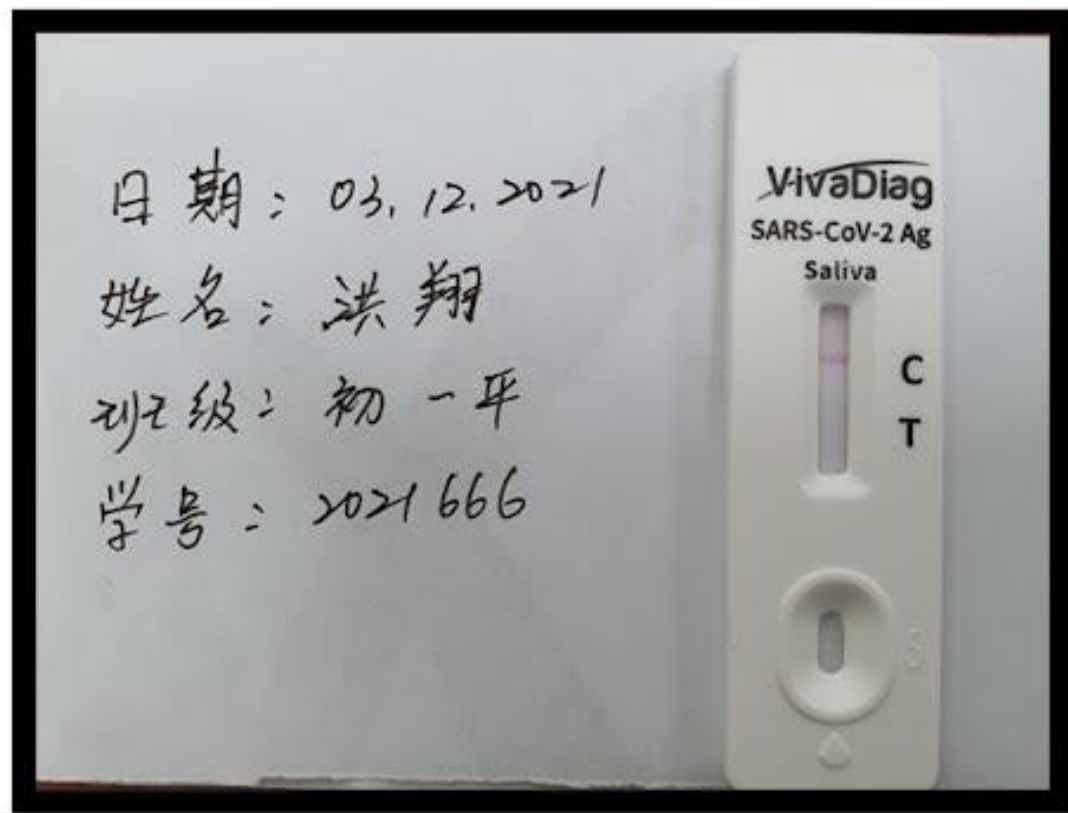 日期：03.12.2021
姓名：洪翔
班级：初一平
学号：2021666
VivaDiag
SARS-CoV-2 Ag
Saliva
C
T
S